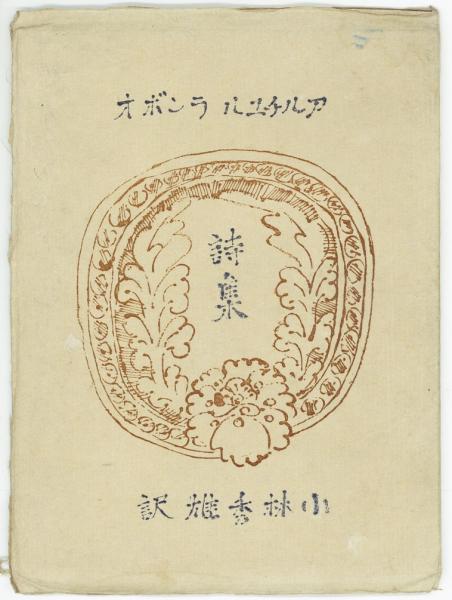 アルチユル ランボオ
詩集
小林秀雄訳